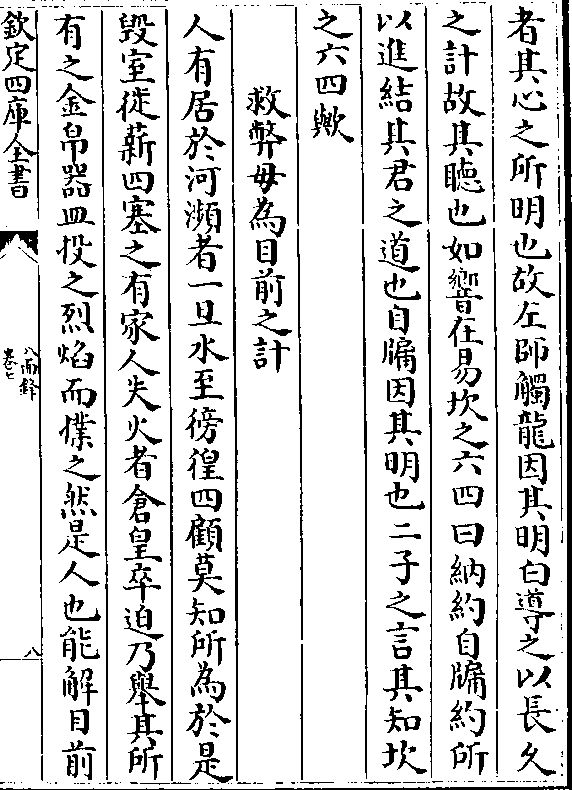 者其心之所明也故左師觸龍因其明白導之以長久
之計故其聽也如響在易坎之六四曰納約自牖約所
以進結其君之道也自牖因其明也二子之言其知坎
之六四歟
救弊毋為目前之計
人有居於河瀕者一旦水至徬徨四顧莫知所為於是
毀室徙薪四塞之有家人失火者倉皇卒迫乃舉其所
有之金帛器皿投之烈焰而撲之然是人也能解目前
欽定四庫全書
八面鋒
卷七
八